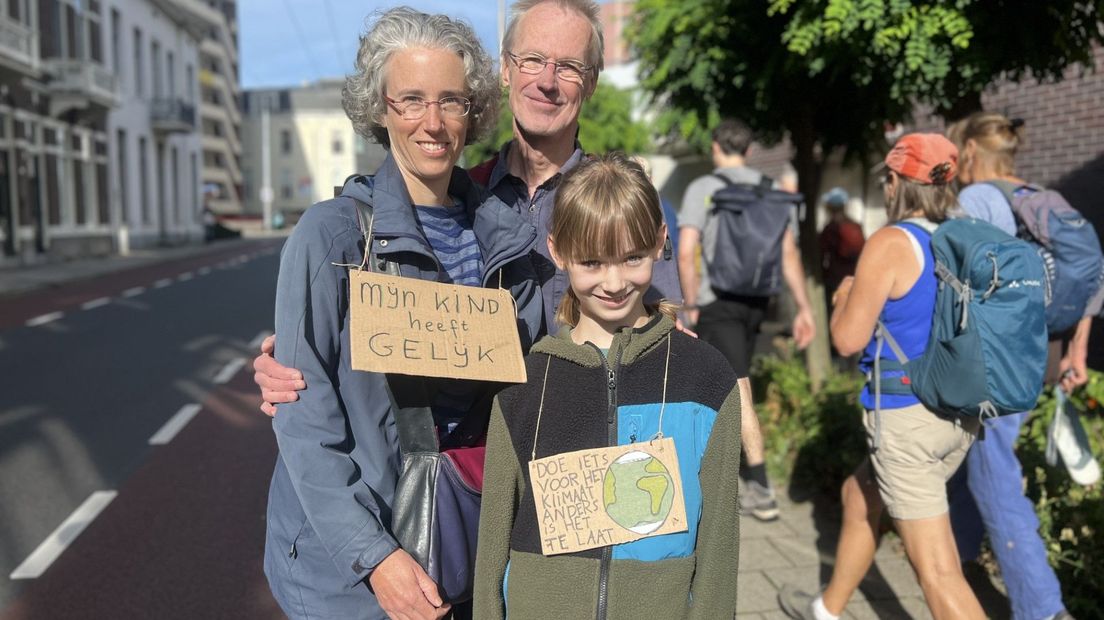 MijN KiND
heeft
GELijK
DOE IETS
VOOR HET
KLIMAAT
ANDERS
IS HET
TE LAAT
VAUDE